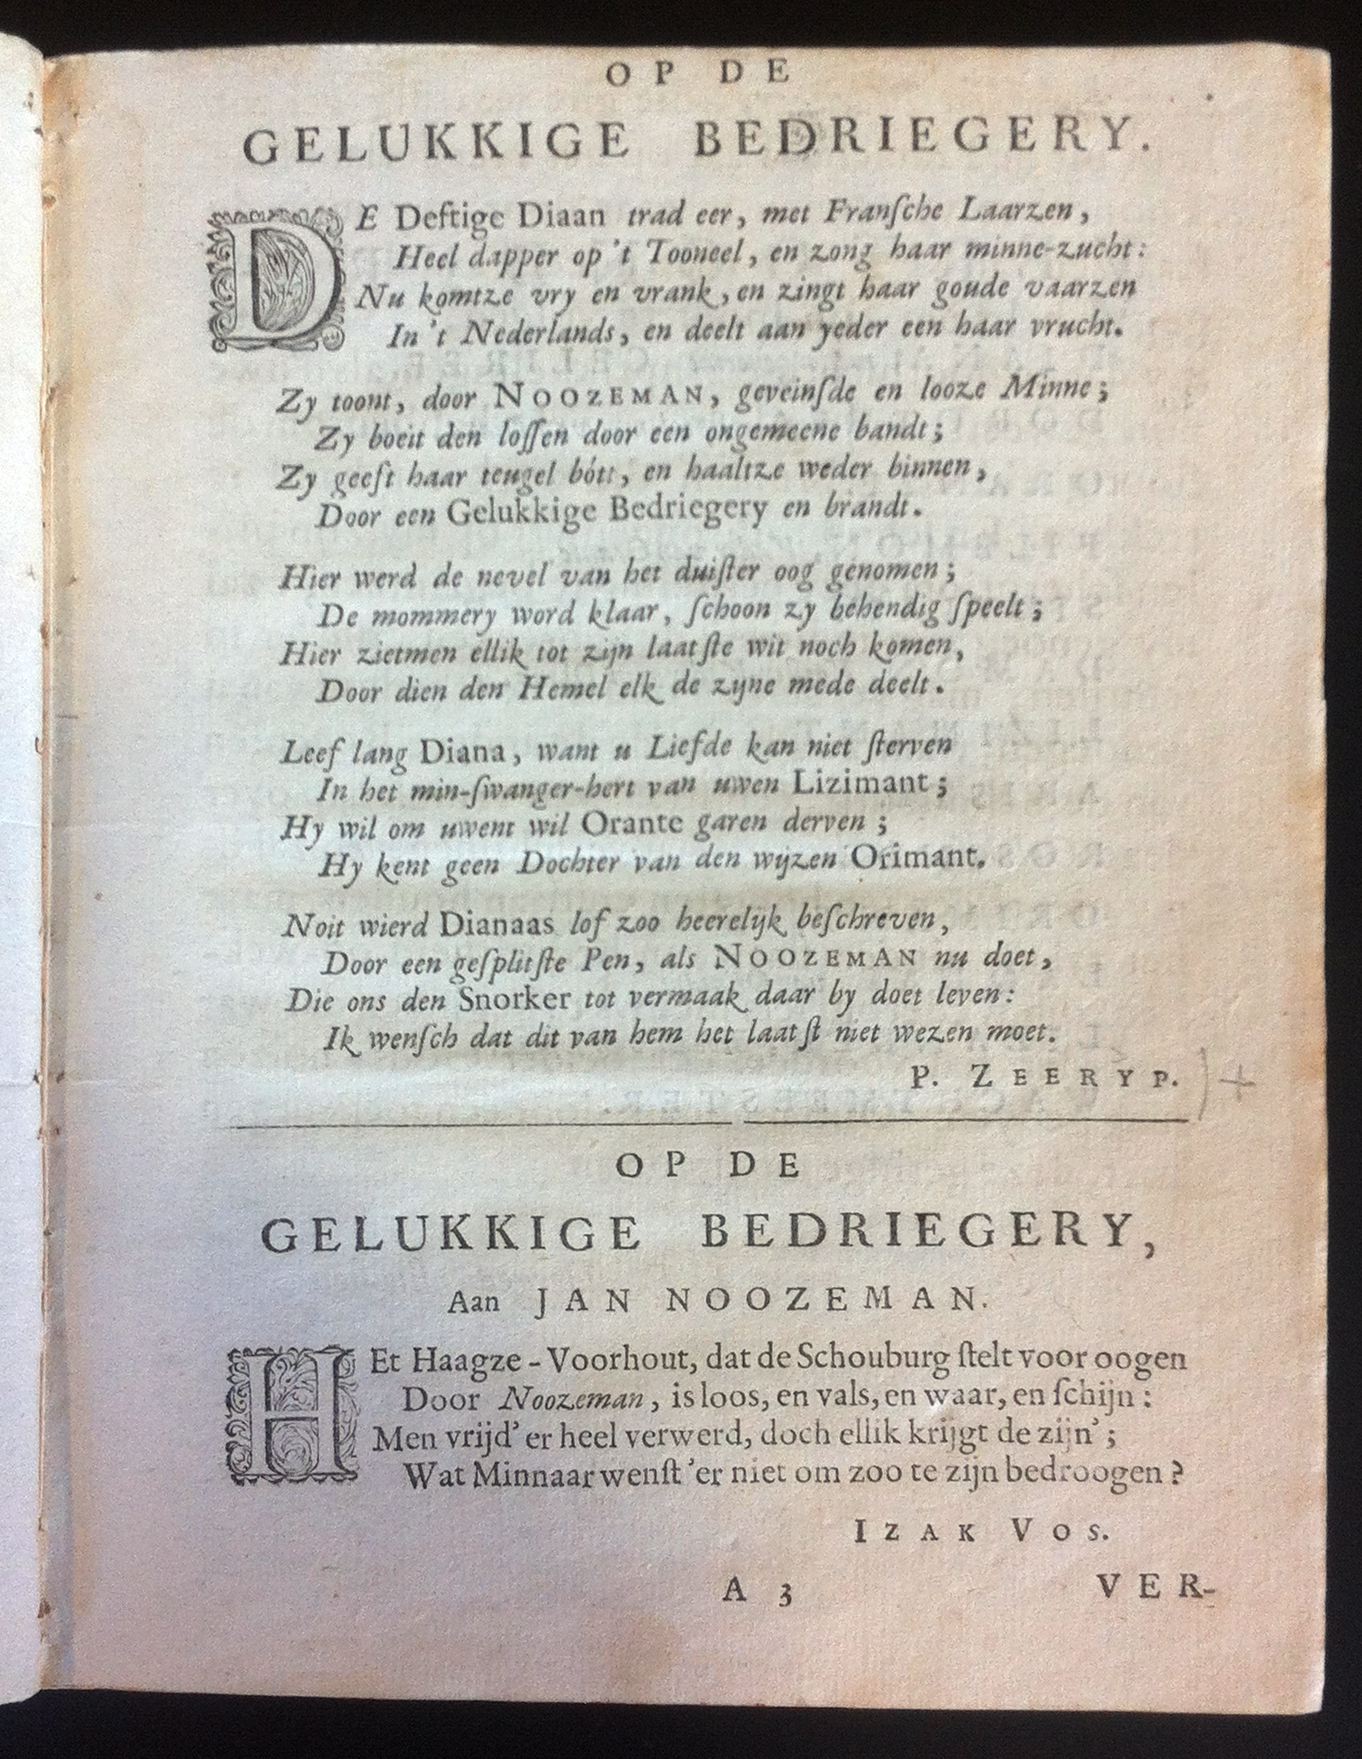 OP DE
GELUKKIGE BEDRIEGERY.
DE Deftige Diaan trad eer, met Franſche Laarzen,
Heel dapper op 't Tooneel, en zong haar minne-zucht:
Nu komtze vry en vrank, en zingt haar goude vaarzen
In 't Nederlands, en deelt aan yeder een haar vrucht.
Zy toont, door NOOZEMAN, geveinſde en looze Minne;
Zy boeit den loſſen door een ongemeene bandt;
Zy geeft haar teugel bótt, en haaltze weder binnen,
Door een Gelukkige Bedriegery en brandt.
Hier werd de nevel van het duiſter oog genomen;
De mommery word klaar, ſchoon zy behendig ſpeelt;
Hier zietmen ellik tot zijn laatſte wit noch komen,
Door dien den Hemel elk de zyne mede deelt.
Leef lang Diana, want u Liefde kan niet ſterven
In het min-ſwanger-hert van uwen Lizimant;
Hy wil om uwent wil Orante garen derven;
Hy kent geen Dochter van den wijzen Orimant.
Noit wierd Dianaas lof zoo heerelijk beſchreven,
Door een geſplitſte Pen, als NOOZEMAN nu doet,
Die ons den Snorker tot vermaak daar by doet leven:
Ik wenſch dat dit van hem het laatſt niet wezen moet.
P. ZEERYP.
OP DE
GELUKKIGE BEDRIEGERY,
Aan JAN NOOZEMAN.
HEt Haagze-Voorhout, dat de Schouburg ſtelt voor oogen
Door Noozeman, is loos, en vals, en waar, en ſchijn:
Men vrijd' er heel verwerd, doch ellik krijgt de zijn';
Wat Minnaar wenſt 'er niet om zoo te zijn bedroogen?
IZAK VOS.
A 3 VER-